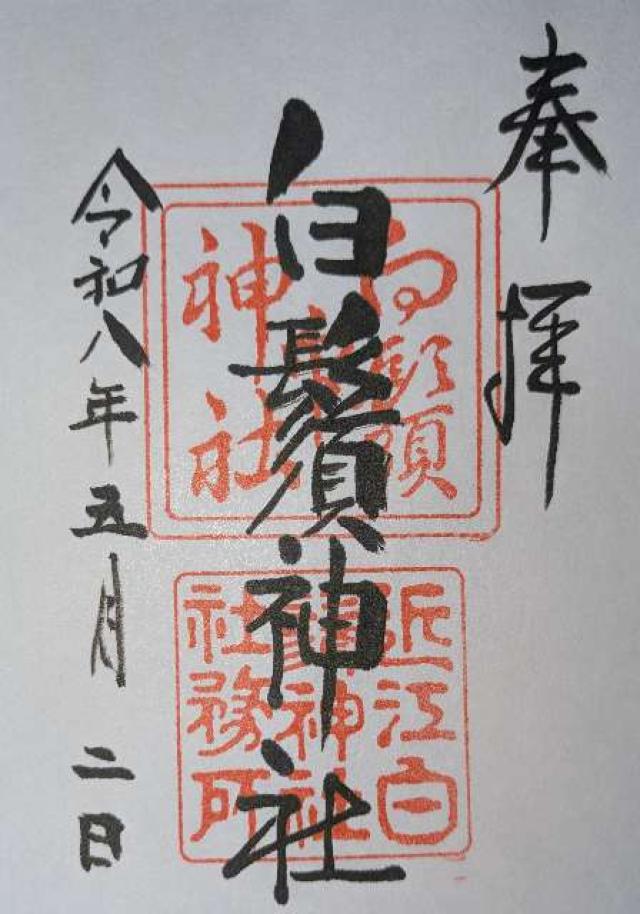 奉拝
白鬚神社
令和八年五月二日
白鬚
神社
近江白
鬚神社
社務所